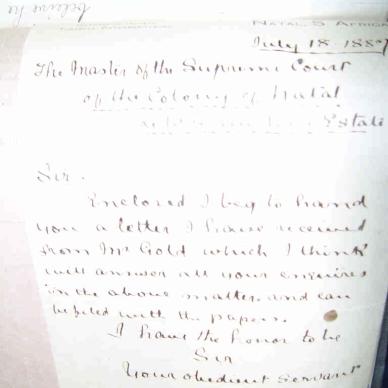 believe he
NATAL S AFRICA
July 18. 188
The Master of the Supreme Court
of the Colony of Natal
Estate
Sir.
Enclosed I beg to hand
you a letter I have received
from Mr Gold which I think
will answer all your enquires
in the above matter and can
be filed with the papers.
I have the honor to be
Sir
Your obedient servant